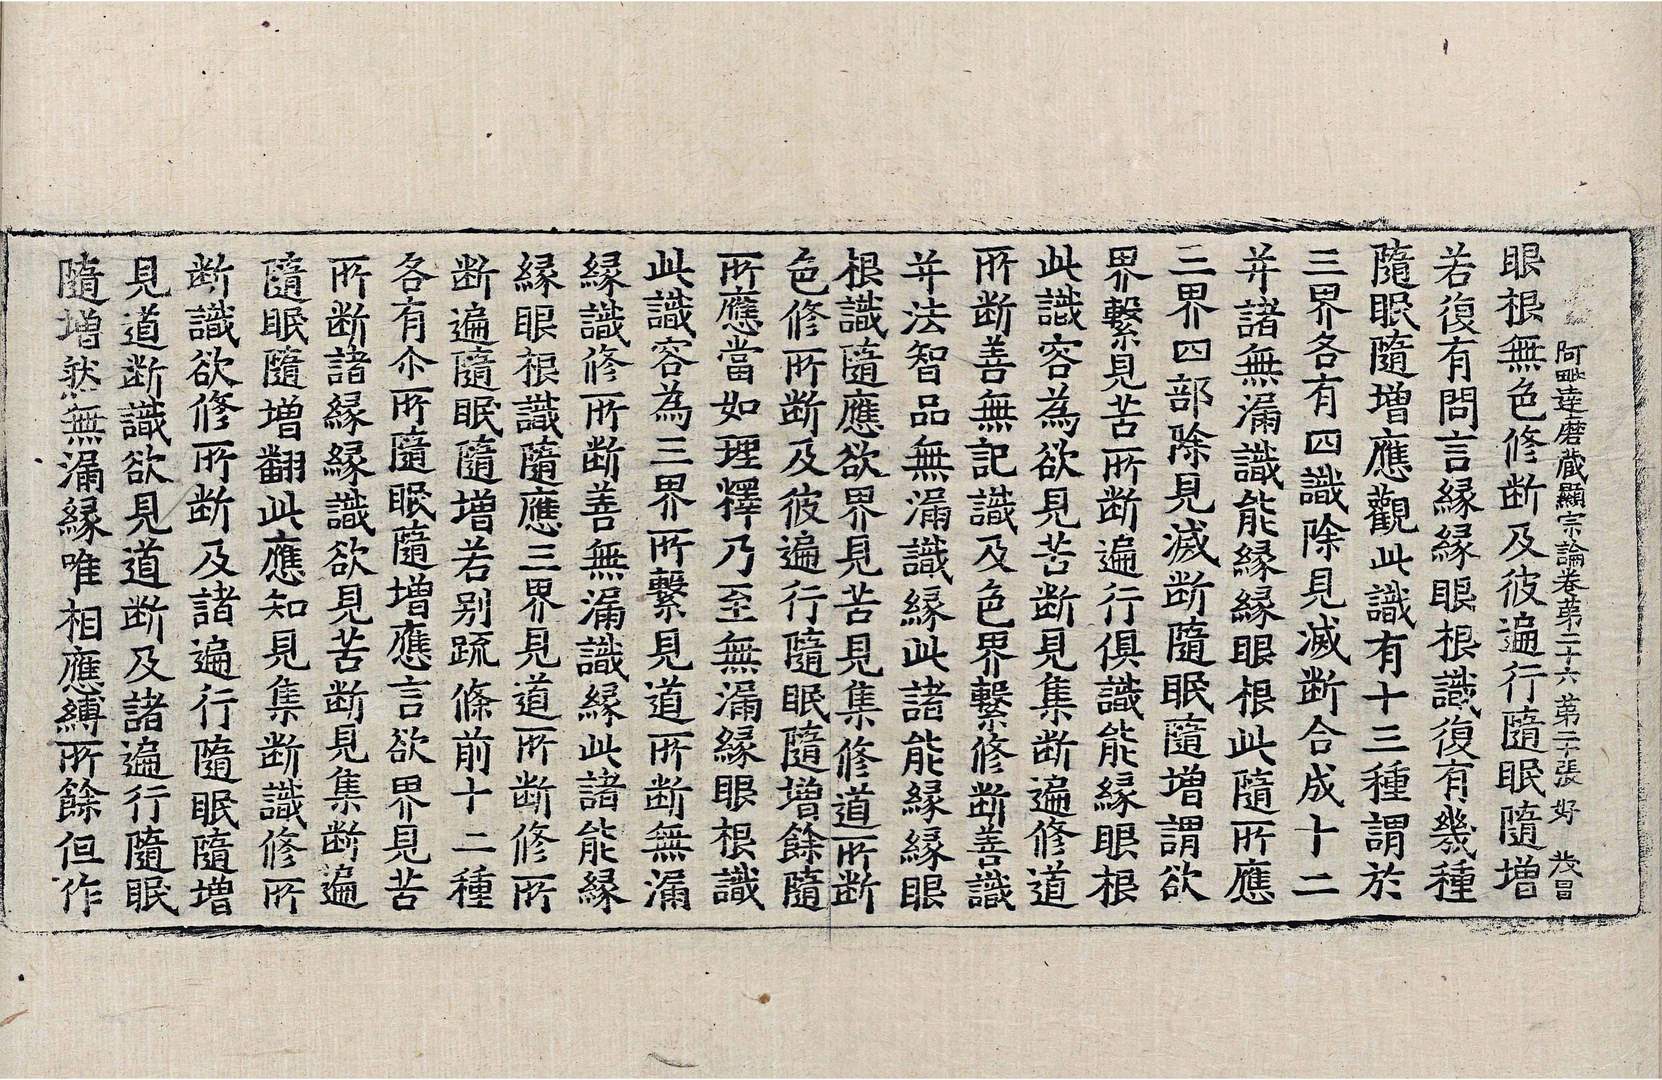 阿毗達磨藏顯宗論卷第二十六 第二十張 好 茂昌
眼根無色修斷及彼遍行隨眠隨增
若復有問言緣緣眼根識復有幾種
隨眠隨增應觀此識有十三種謂於
三界各有四識除見滅斷合成十二
并諸無漏識能緣緣眼根此隨所應
三界四部除見滅斷隨眠隨增謂欲
界繫見苦所斷遍行俱識能緣眼根
此識容為欲見苦斷見集斷遍修道
所斷善無記識及色界繫修斷善識
并法智品無漏識緣此諸能緣緣眼
根識隨應欲界見苦見集修道所斷
色修所斷及彼遍行隨眠隨增餘隨
所應當如理釋乃至無漏緣眼根識
此識容為三界所繫見道所斷無漏
緣識修所斷善無漏識緣此諸能緣
緣眼根識隨應三界見道所斷修所
斷遍隨眠隨增若別疏條前十二種
各有尒所隨眠隨增應言欲界見苦
所斷諸緣緣識欲見苦斷見集斷遍
隨眠隨增翻此應知見集斷識修所
斷識欲修所斷及諸遍行隨眠隨增
見道斷識欲見道斷及諸遍行隨眠
隨增然無漏緣唯相應縛所餘但作